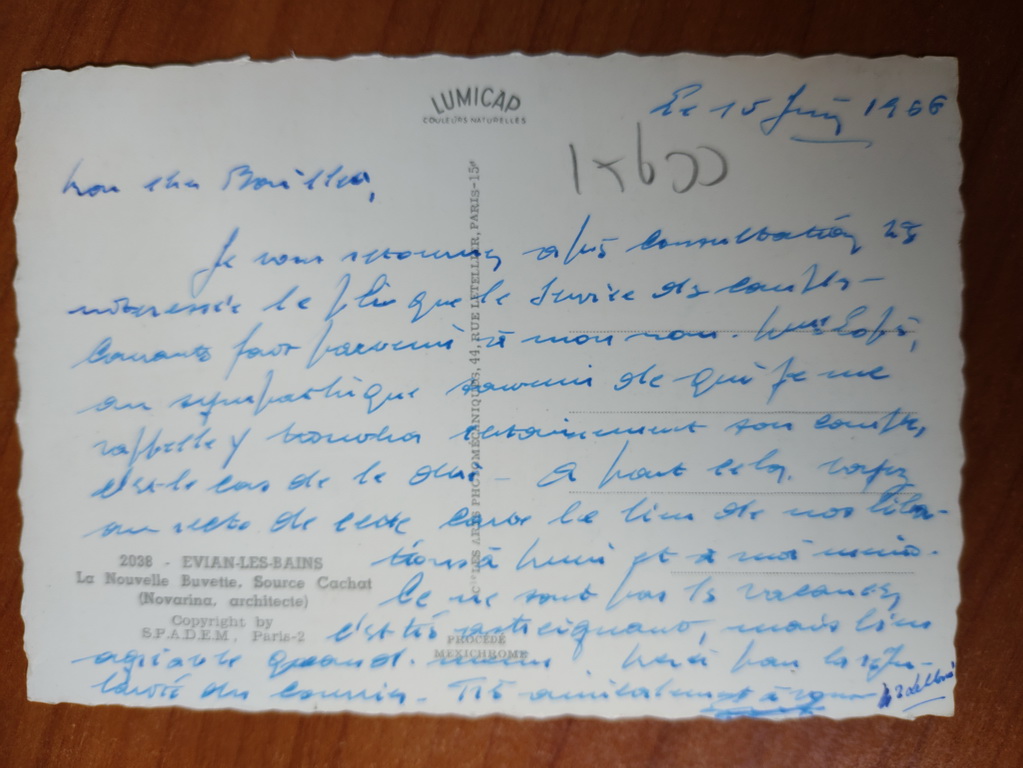 LUMICAP
COULEURS NATURELLES
Le 15 Juin 1966
15600
Mon cher
Je vous retourne, après consultation
intéressée le pli que le Service des comptes-
courants fait parvenir à mon nom.
au sympathique souvenir de qui je me
rappelle y trouvera certainement son compte,
c'est le cas de le dire. A part cela, voyez
au recto de cette carte le lieu de nos liba-
tions à et à moi-même.
Ce ne sont pas les vacances
c'est très astreignant, mais bien
agréable quand-même. Merci pour la régu-
larité du courrier. Très amicalement à vous
2038 - EVIAN-LES-BAINS
La Nouvelle Buvette, Source Cachat
(Novarina, architecte)
Copyright by
S.P.A.D.E.M., Paris-2
LES ARTS PHOTOMÉCANIQUES, 44, RUE LETELLIER, PARIS-15e
PROCÉDÉ
MEXICHROME